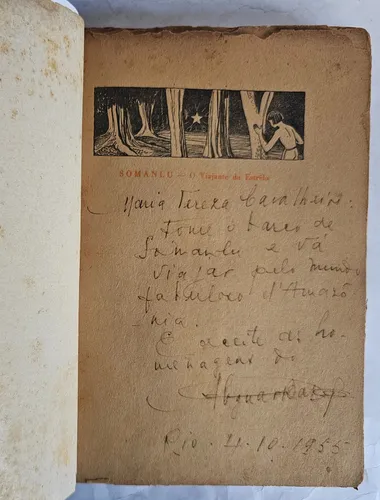 SOMANLU — O Viajante da Estrêla
Maria Tereza Cavalheiro:
Tome o barco de
Somanlu e vá
viajar pelo mundo
fabuloso d'Amazô
nia.
E aceite as ho-
menagens do
Rio. 4.10.1955